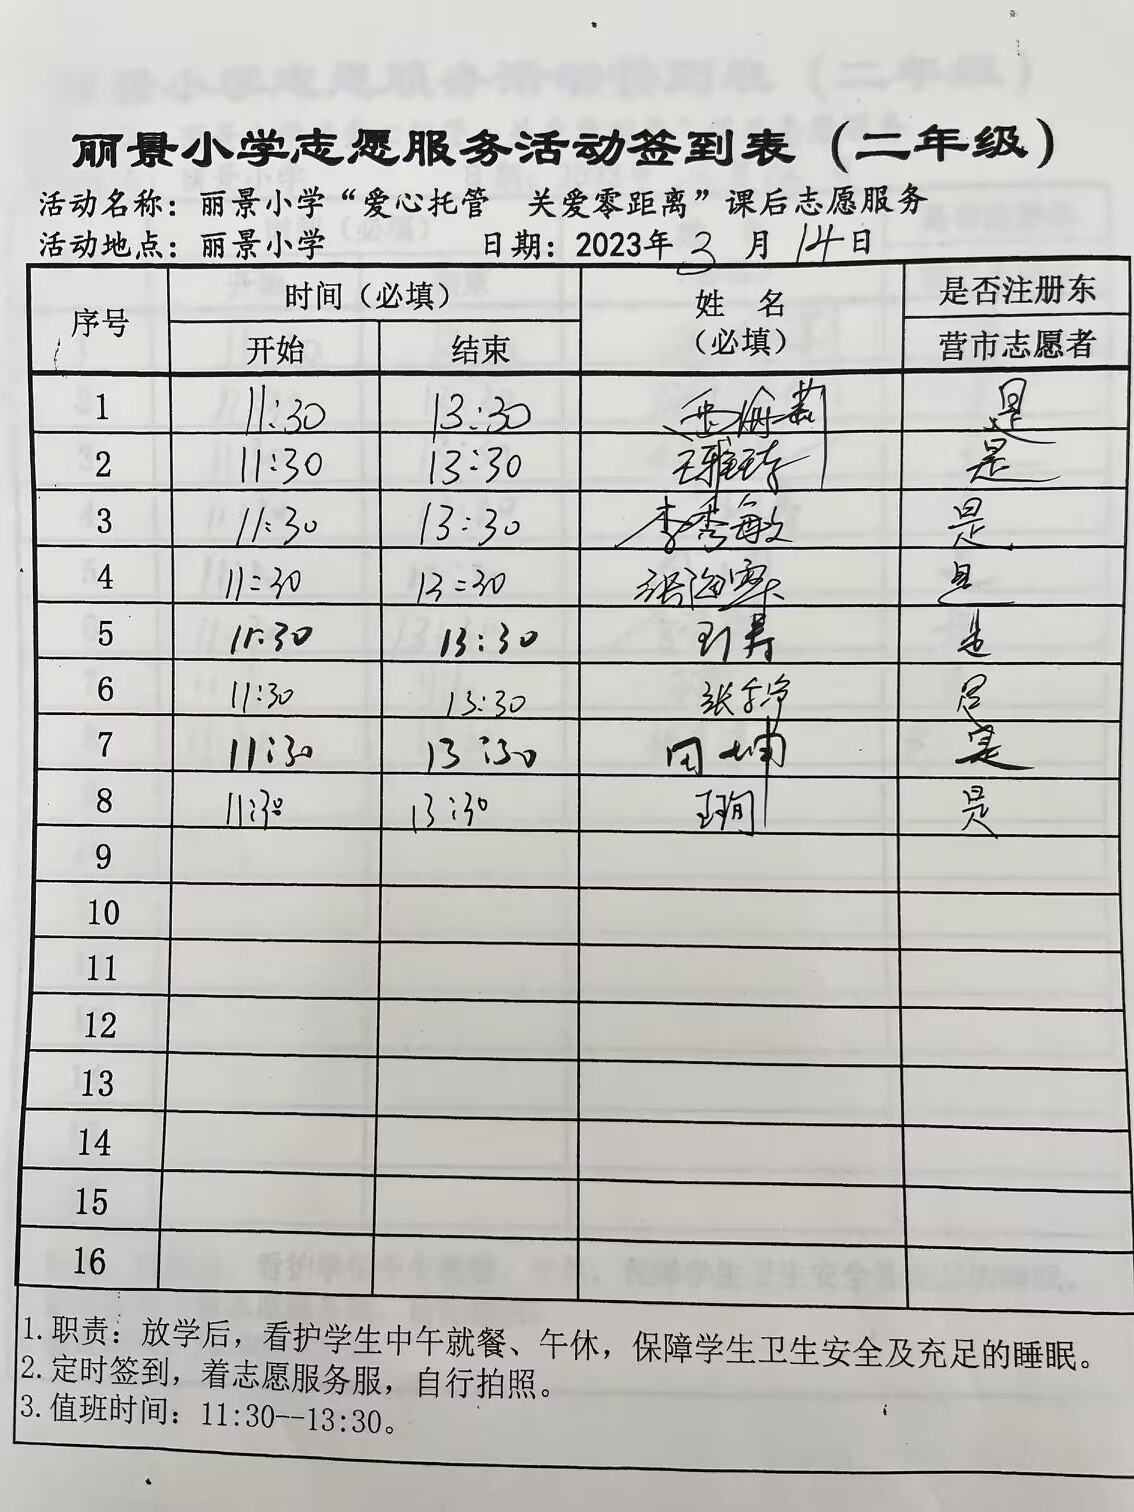 丽景小学志愿服务活动签到表（二年级）
活动名称：丽景小学“爱心托管 关爱零距离”课后志愿服务
活动地点：丽景小学 日期：2023年3月14日
序号 时间（必填） 姓 名 是否注册东
开始 结束 （必填） 营市志愿者
1 11:30 13:30 是
2 11:30 13:30 是
3 11:30 13:30 李秀敏 是
4 11:30 13:30 张海 是
5 11:30 13:30 是
6 11:30 13:30 张 是
7 11:30 13:30 田坤 是
8 11:30 13:30 是
9
10
11
12
13
14
15
16
1.职责：放学后，看护学生中午就餐、午休，保障学生卫生安全及充足的睡眠。
2.定时签到，着志愿服务服，自行拍照。
3.值班时间：11:30--13:30。